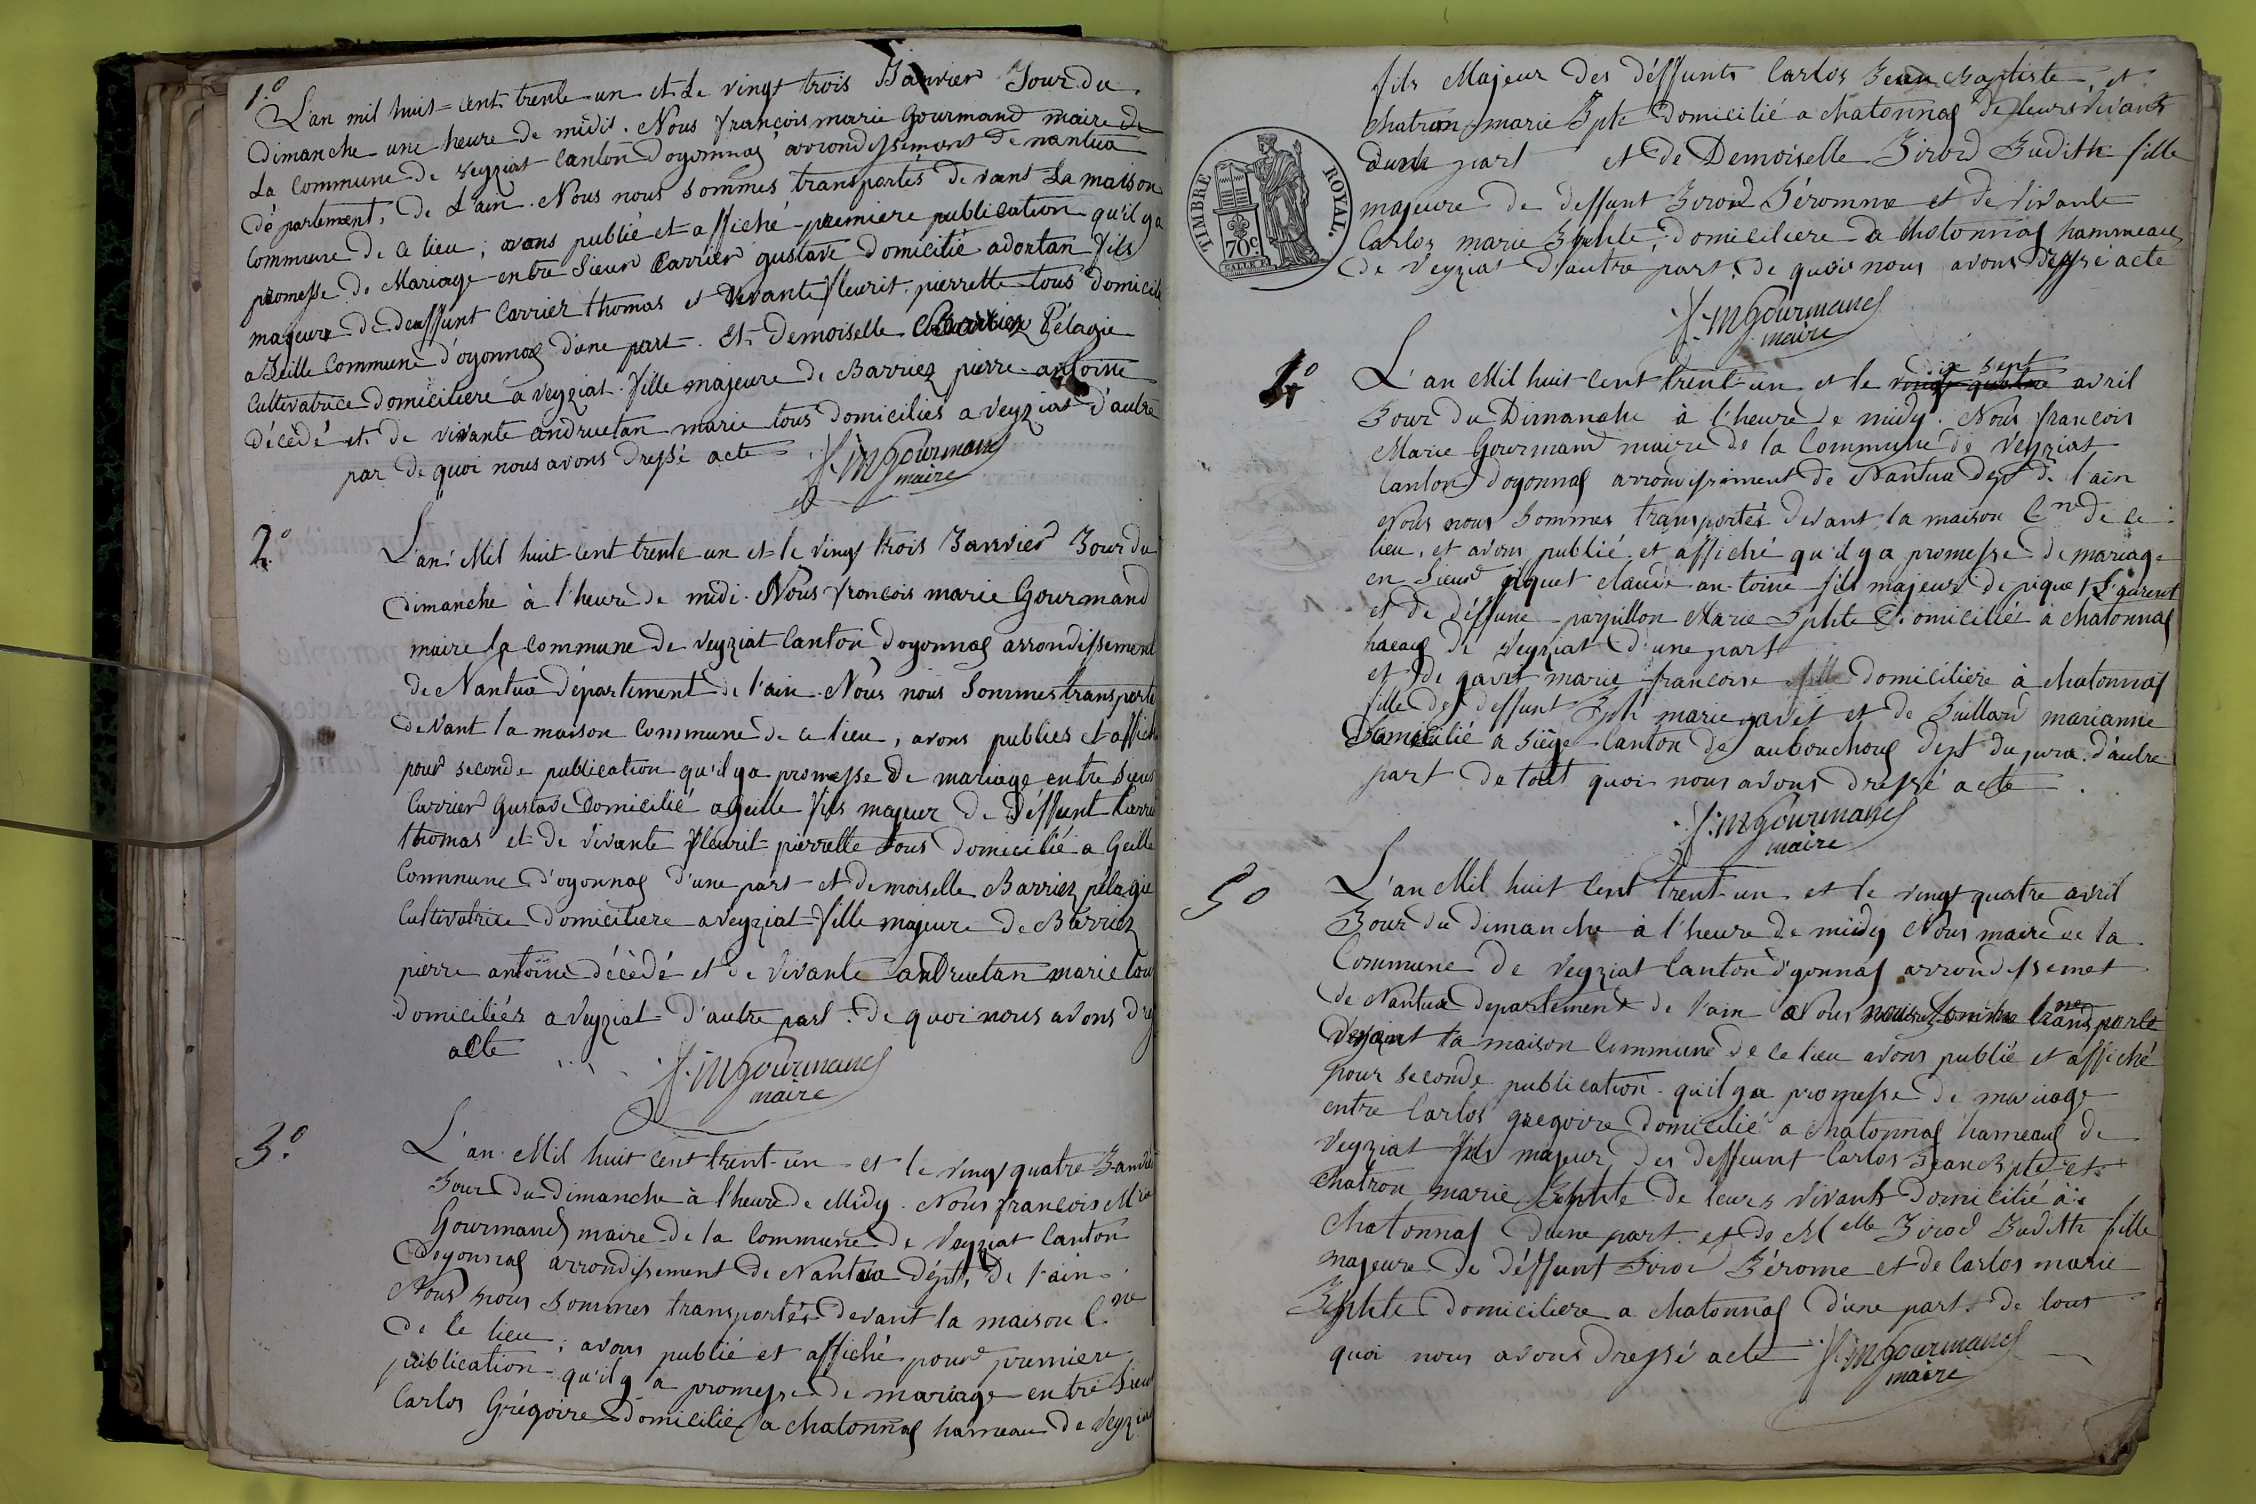 1.º
L'an mil huit-cent trente un et Le vingt trois Janvier Jour du
Dimanche une heure de midis. Nous françois marie Gourmand maire de
La Commune de veyziat Canton D'oyonnas arrondissement de nantua
département, de L'ain. Nous nous Sommes transportés devant La maison
Commune de ce lieu, avons publié et affiché premiere publication qu'il ya
promesse de Mariage entre Sieur Carrier gustave domicilié adortan fils
majeur de deuffunt Carrier thomas et vivante fleurit pierrette tous domicili
a Geille Commune d'oyonnas d'une part. Et Demoiselle Pélagie
Cultivatrice domicilierè a veyziat fille majeure de Barriez pierre antoine
décédé et de vivante andruetan marie tous domiciliés a veyziat d'autre
par de quoi nous avons Dressé acte
f. m gourmand
maire
2.º
L'an Mil huit-cent trente un et le vingt trois Janvier Jour du
dimanche à l'heure de midi. Nous françois marie Gourmand
maire la commune de Veyziat Canton d'oyonnas arrondissement
de Nantua département de l'ain. Nous nous Sommes transporté
devant la maison commune de ce lieu, avons publies et affich
pour seconde publication qu'il ya promesse de mariage entre Sieur
Carrier Gustave Domicilié a Geille fils majeur de Déffunt Carrie
thomas et de vivante fleurit pierrette tous domicilié a Geille
Commune d'oyonnas d'une part et demoiselle Barriez pélagie
Cultivatrice domiciliere a veyziat fille majeure de Barriez
pierre antoine décédé et de vivante andruetan marie tou
domiciliés a Veyziat d'autre part. de quoi nous avons dre
acte
f. m gourmand
maire
3.º
L'an Mil huit cent trent-un et le vingt quatre Janvier
Jour du dimanche à l'heure de Midy. Nous françois Mie
Gourmand maire de la Commune de Veyziat Canton
doyonnas arrondissement de Nantua dépt, de l'ain
Nous nous Sommes transportés devant la maison Cne
de ce lieu; avons publié et affiché pour premiere
publication qu'il y a promesse de mariage entre Sieur
Carlos Grégoire domicilié a chatonnas hameau de Veyziat
fils Majeur des déffunts Carlos Jean Baptiste, et
Chatron marie Jpte domicilié a chatonnas de leurs vivants
d'une part et de Demoiselle Girod Judith fille
majeure de deffunt Girod Jéromme et de vivante
Carlos marie Jphte, domiciliere a chatonnas hammeau
de Veyziat d'autre part, de quoi nous avons dressé acte
TIMBRE ROYAL.
70c.
f. m gourmand
maire
4º
dix sept
L'an Mil huit-cent trent-un et le vingt quatre avril
Jour du Dimanche à l'heure de midy. Nous françois
Marie Gourmand maire de la Commune de Veyziat
Canton d'oyonnas arrondissement de Nantua dept de l'ain
Nous nous Sommes transportés devant la maison Cne de ce
lieu, et avons publié et affiché qu'il ya promesse de mariage
en Sieur piquet claude an-toine fils majeur de piquet Laurent
et de déffune papillon Marie Jphte domicilié à chatonnas
de Veyziat d'une part
et de gavet marie francoise fille domiciliere à chatonnas
fille des deffunt Jph marie gavet et de Juillard marianne
Domicilié a Siège Canton de aubouchous dept du jura d'autre
part de tout quoi nous avons dressé acte
f. m gourmand
maire
5º
L'an Mil huit Cent trent-un et le vingt quatre avril
Jour du dimanche à l'heure de midy Nous maire de la
Commune de Veyziat Canton d'yonnas arrondissemet
de Nantua departement de l'ain Nous nous Somme transporté
devant la maison Commune de ce lieu avons publié et affiché
pour seconde publication qu'il ya promesse de mariage
entre Carlos gregoire domicilié a chatonnas hameau de
Veyziat fils majeur des deffunt Carlos Jean Bpte et
Chatron marie Jphte de leurs vivants domicilié à
Chatonnas d'une part et de Melle Girod Judith fille
majeure de déffunt Girod Jérome et de Carlos marie
Jphte domiciliere a chatonnas d'une part. de tout
quoi nous avons dressé acte
f. m gourmand
maire